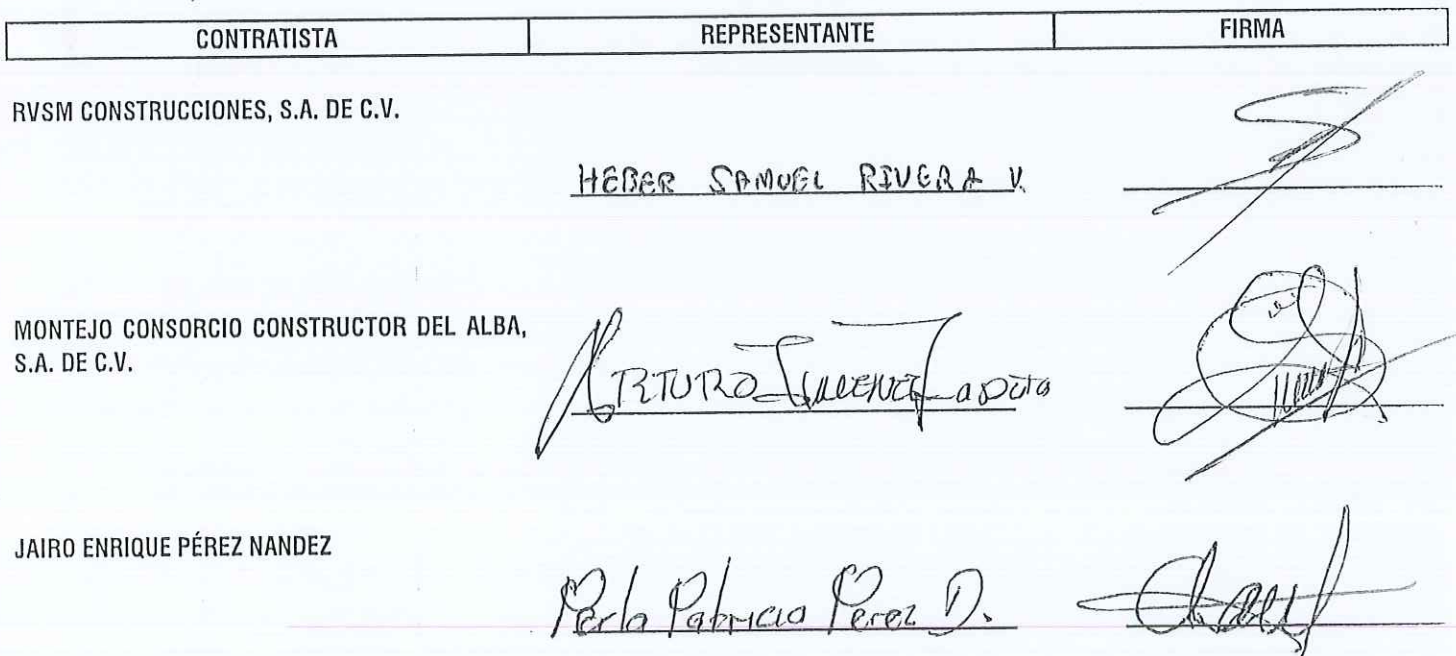 CONTRATISTA REPRESENTANTE FIRMA
RVSM CONSTRUCCIONES, S.A. DE C.V.
HEBER SAMUEL RIVERA V.
MONTEJO CONSORCIO CONSTRUCTOR DEL ALBA,
S.A. DE C.V.
ARTURO
JAIRO ENRIQUE PÉREZ NANDEZ
Perla Patricia Perez D.